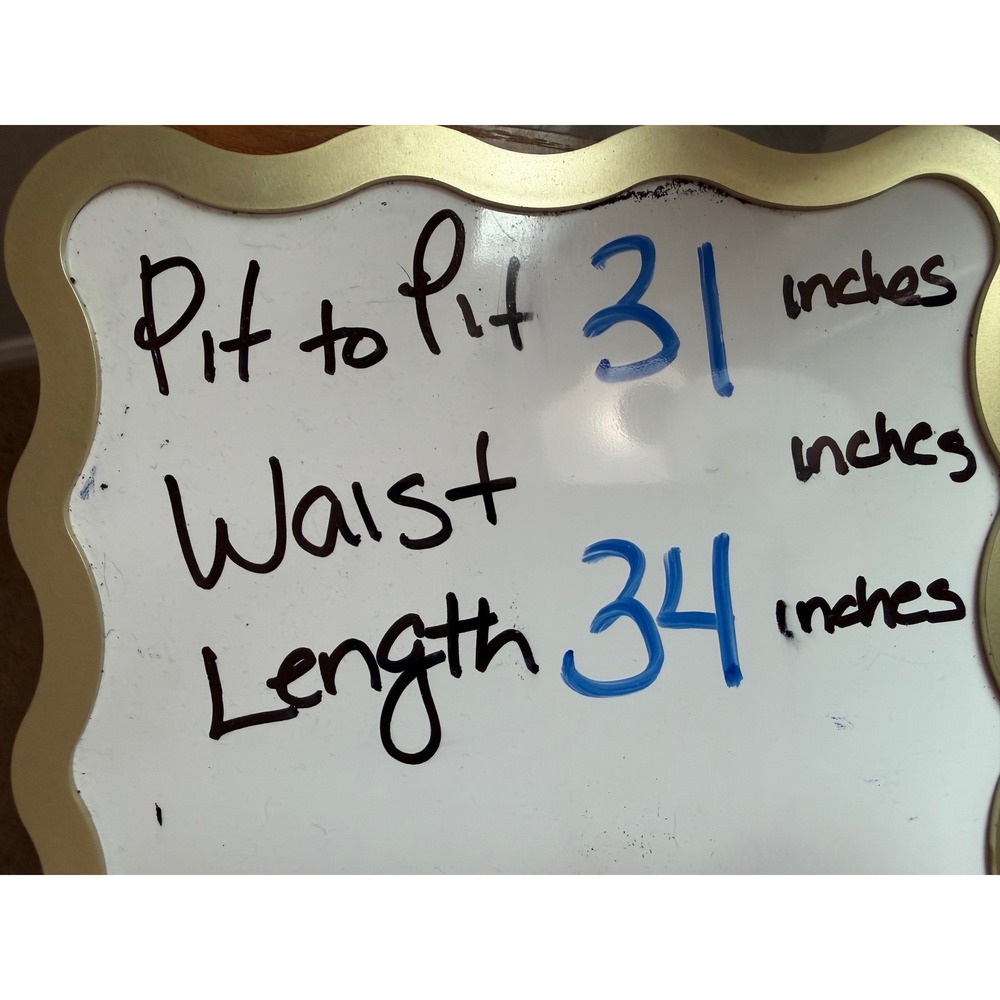 Pit to Pit 31 inches
Waist inches
Length 34 inches